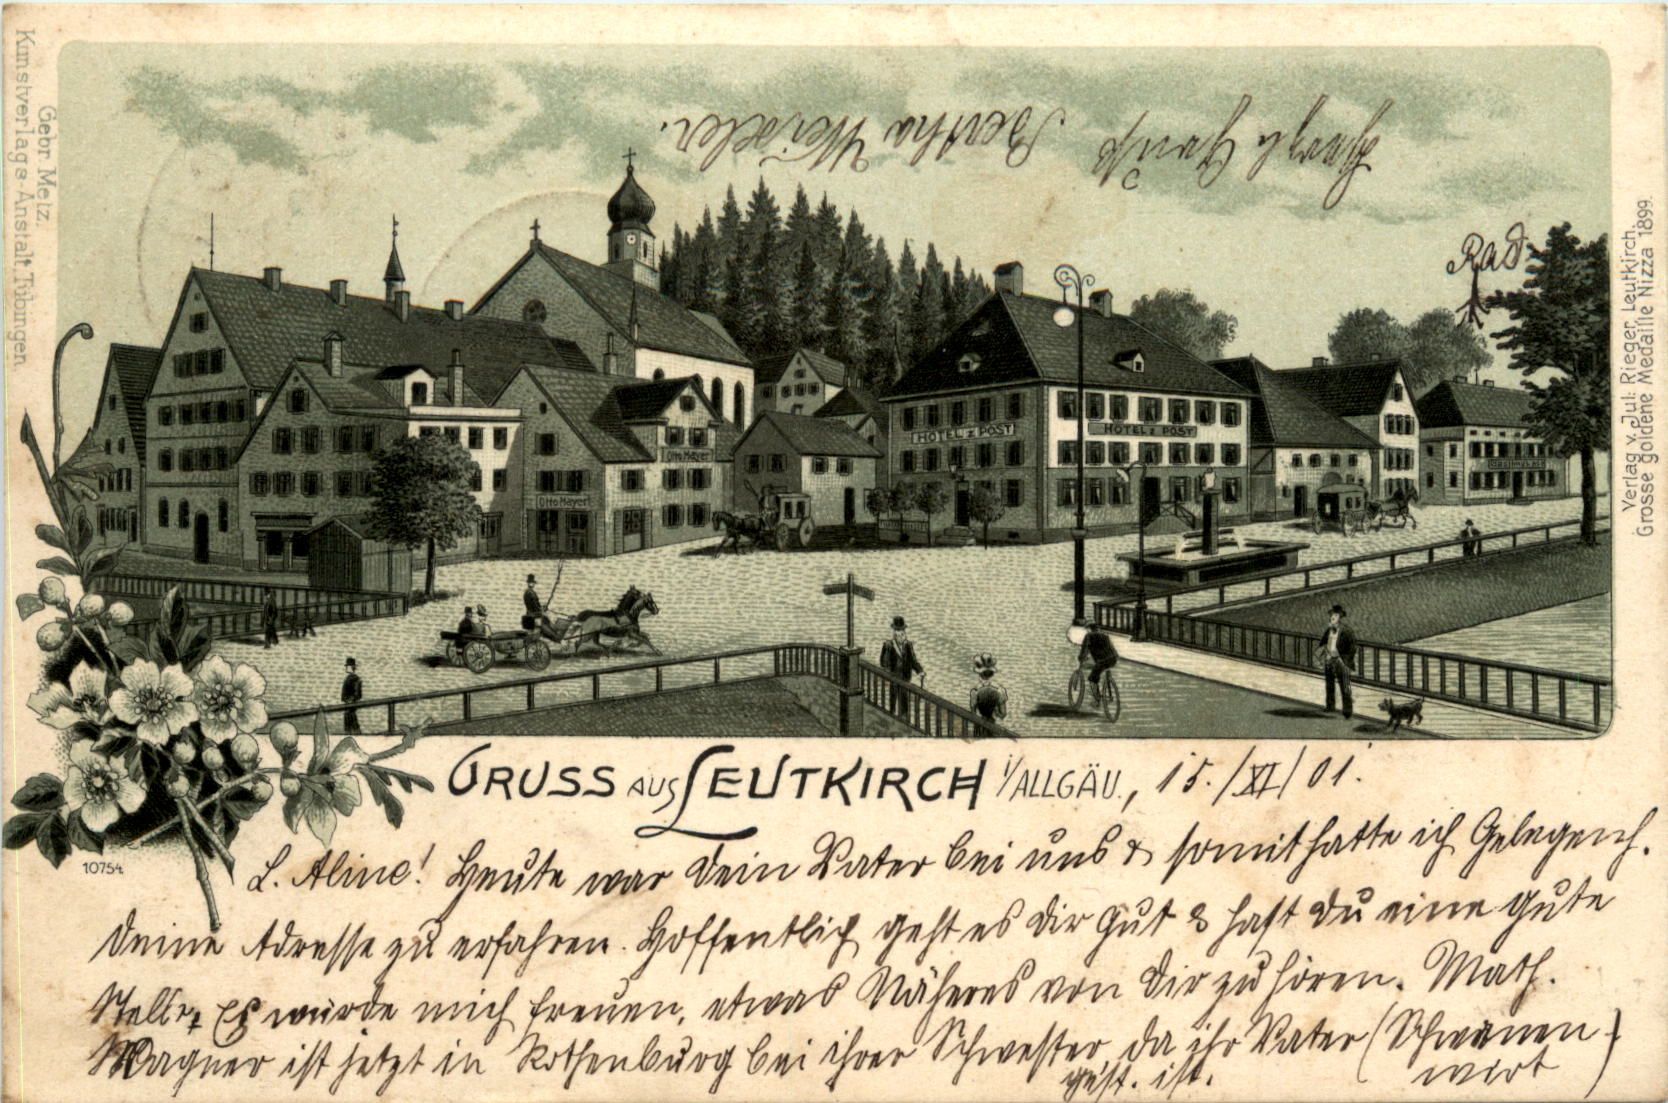 Gebr. Metz.
Kunstverlags-Anstalt, Tübingen.
Bertha Weixler.
Rad
Verlag v. Jul. Rieger, Leutkirch.
Grosse goldene Medaille Nizza 1899.
HOTEL z. POST
HOTEL z. POST
Otto Mayer
Otto Mayer
GRUSS AUS LEUTKIRCH i/ALLGÄU., 15./XI/01.
10754
L. Aline! Heute war dein Vater bei uns & somit hatte ich Gelegenh.
deine Adresse zu erfahren. Hoffentlich geht es dir gut & hast du eine gute
Stelle. Es würde mich freuen, etwas Näheres von dir zu hören. Math.
Wagner ist jetzt in Rothenburg bei ihrer Schwester, da ihr Vater (Schwanen-
wirt)
gest. ist.